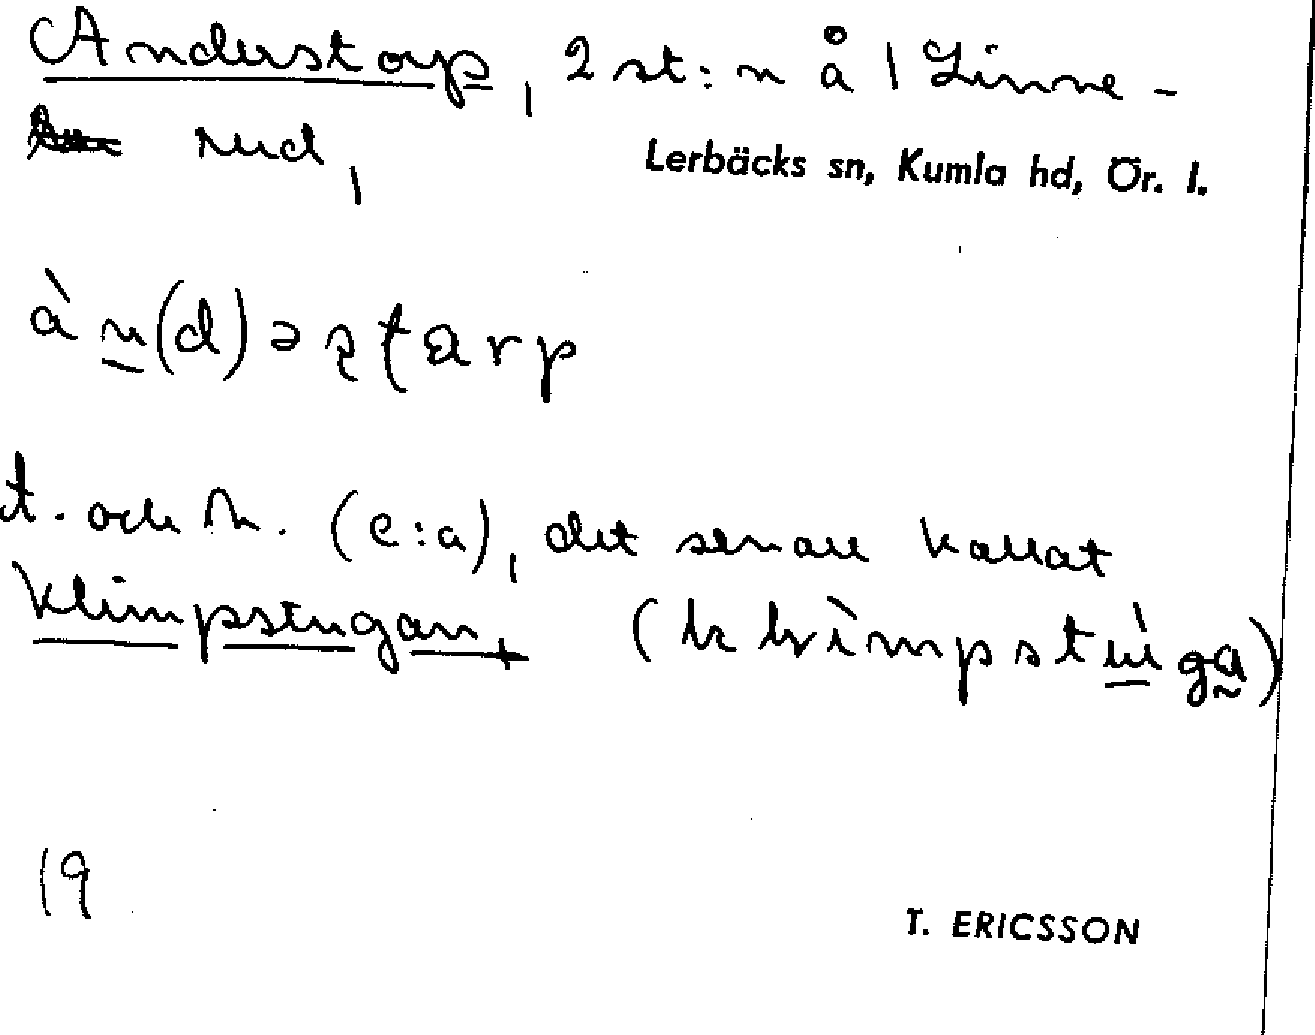 Anderstorp, 2 st:n å 1 Linne-
rud,
Lerbäcks sn, Kumla hd, Ör. l.
àn(d)əʂʈarp
t. och h. (c:a), det senare kallat
Klimpstugan, (klìmpstúga)
19
T. ERICSSON